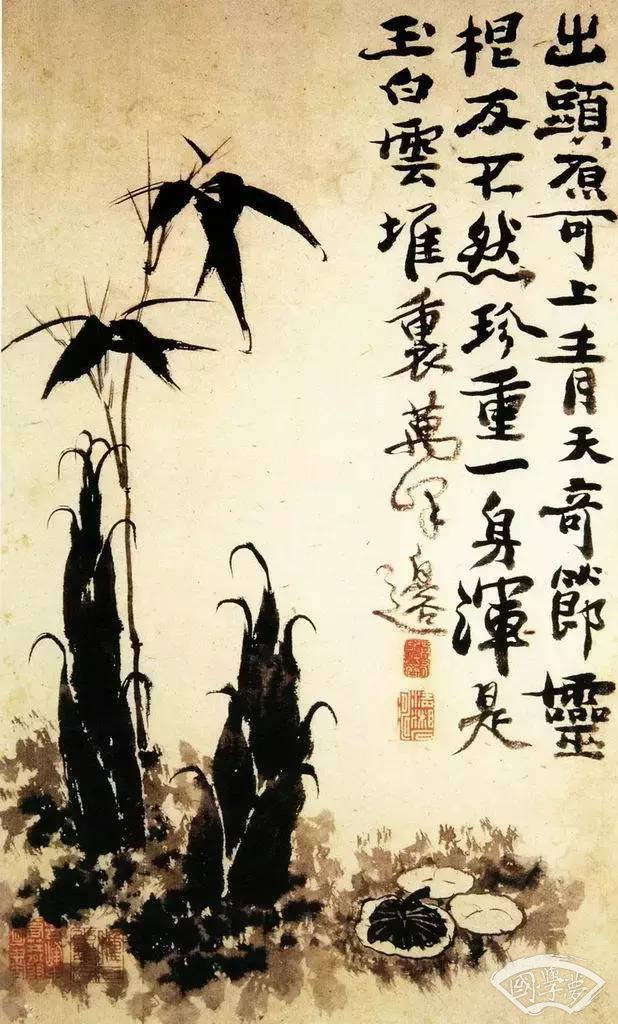 出頭原可上青天奇節靈
根反不然珍重一身渾是
玉白雲堆裏萬峯邊
國學夢